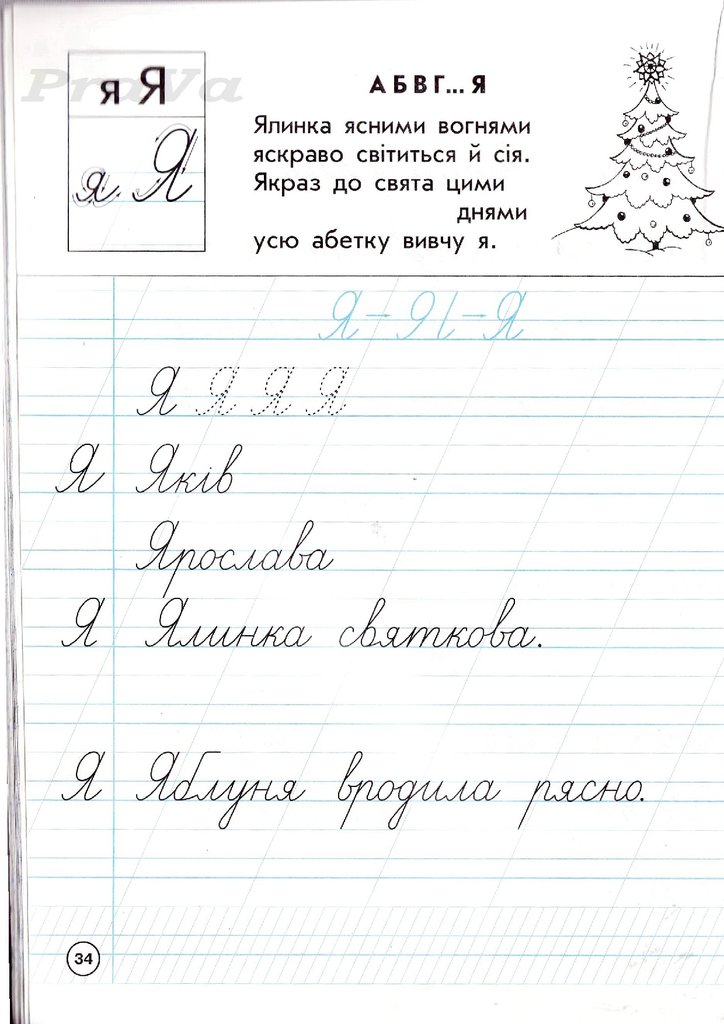 PraVa
я Я
я Я
А Б В Г... Я
Ялинка ясними вогнями
яскраво світиться й сія.
Якраз до свята цими
днями
усю абетку вивчу я.
Я Я Я Я
Я Яків
Ярослава
Я Ялинка святкова.
Я Яблуня вродила рясно.
34